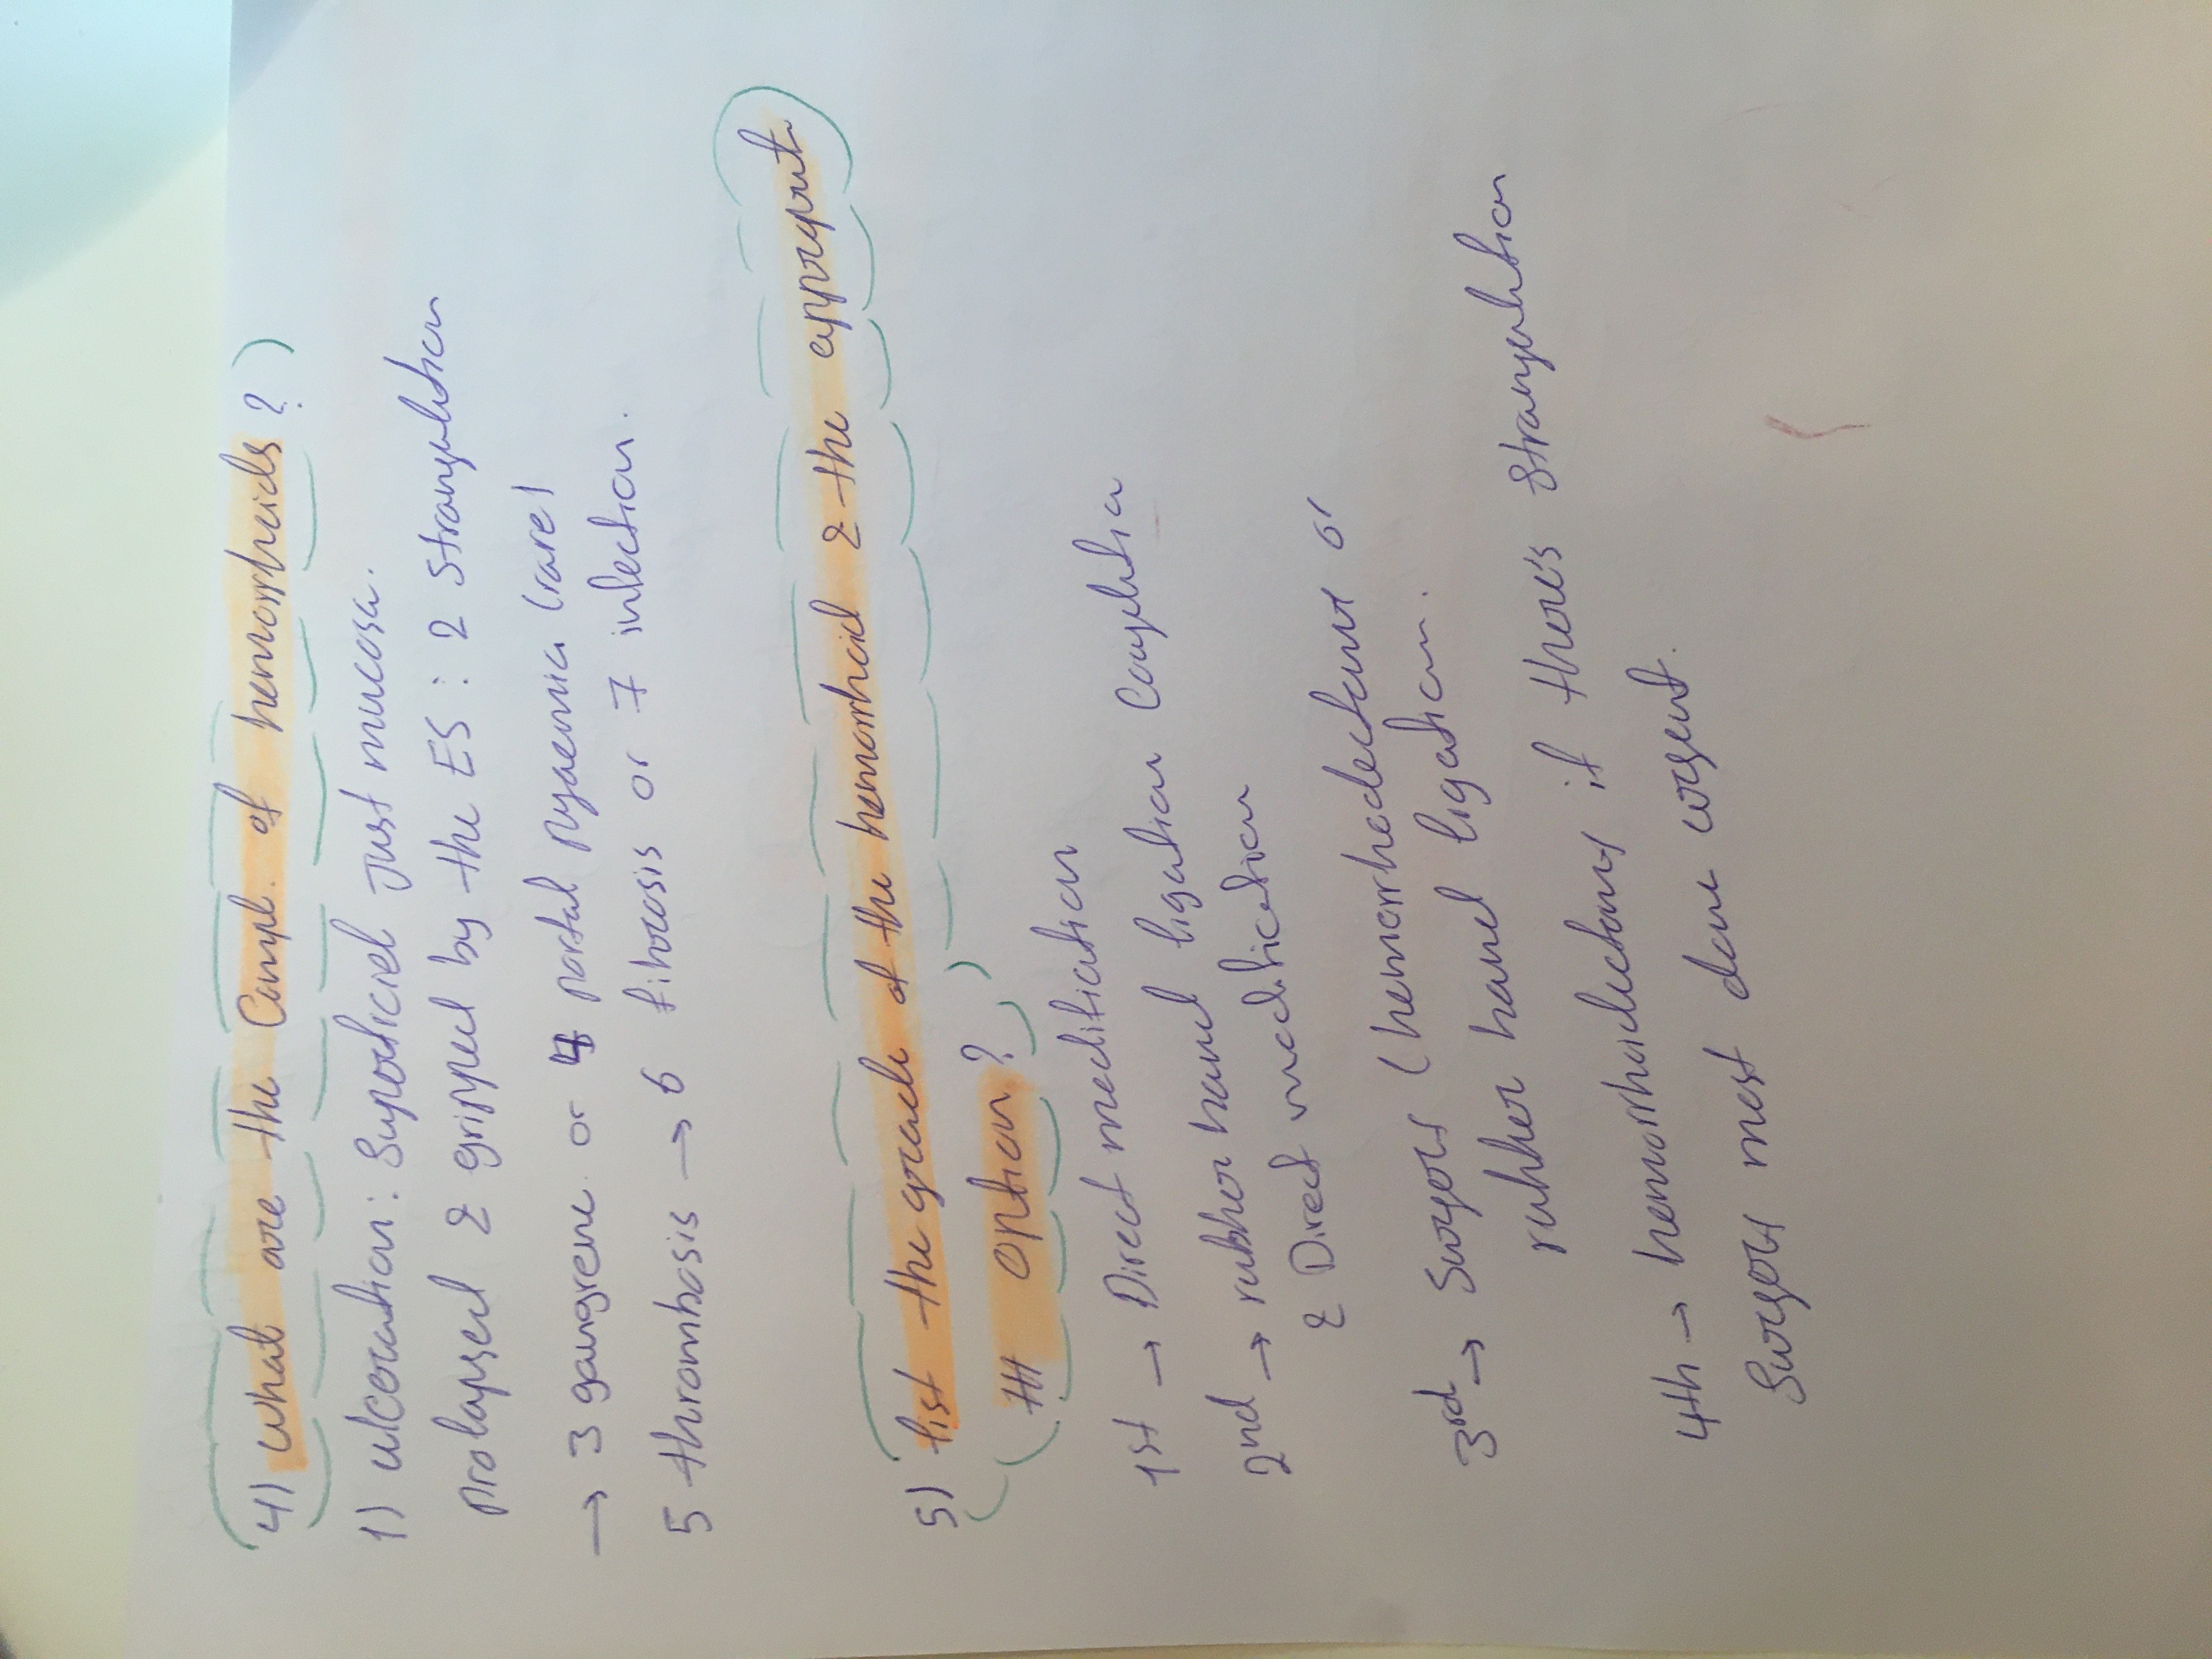 4) What are the Compl. of hemorrhoids?
1) ulceration: Superficial Just mucosa.
Prolapsed & gripped by the ES: 2 strangulation
→ 3 gangrene or 4 portal pyaemia (rare)
5 thrombosis → 6 fibrosis or 7 infection.
5) list the grade of the hemorrhoid & the
ttt option?
1st → Direct
2nd → rubber band ligation
& Direct
3rd → Surgery (
rubber band ligation.
if there's strangulation
4th →
Surgery most done urgent.